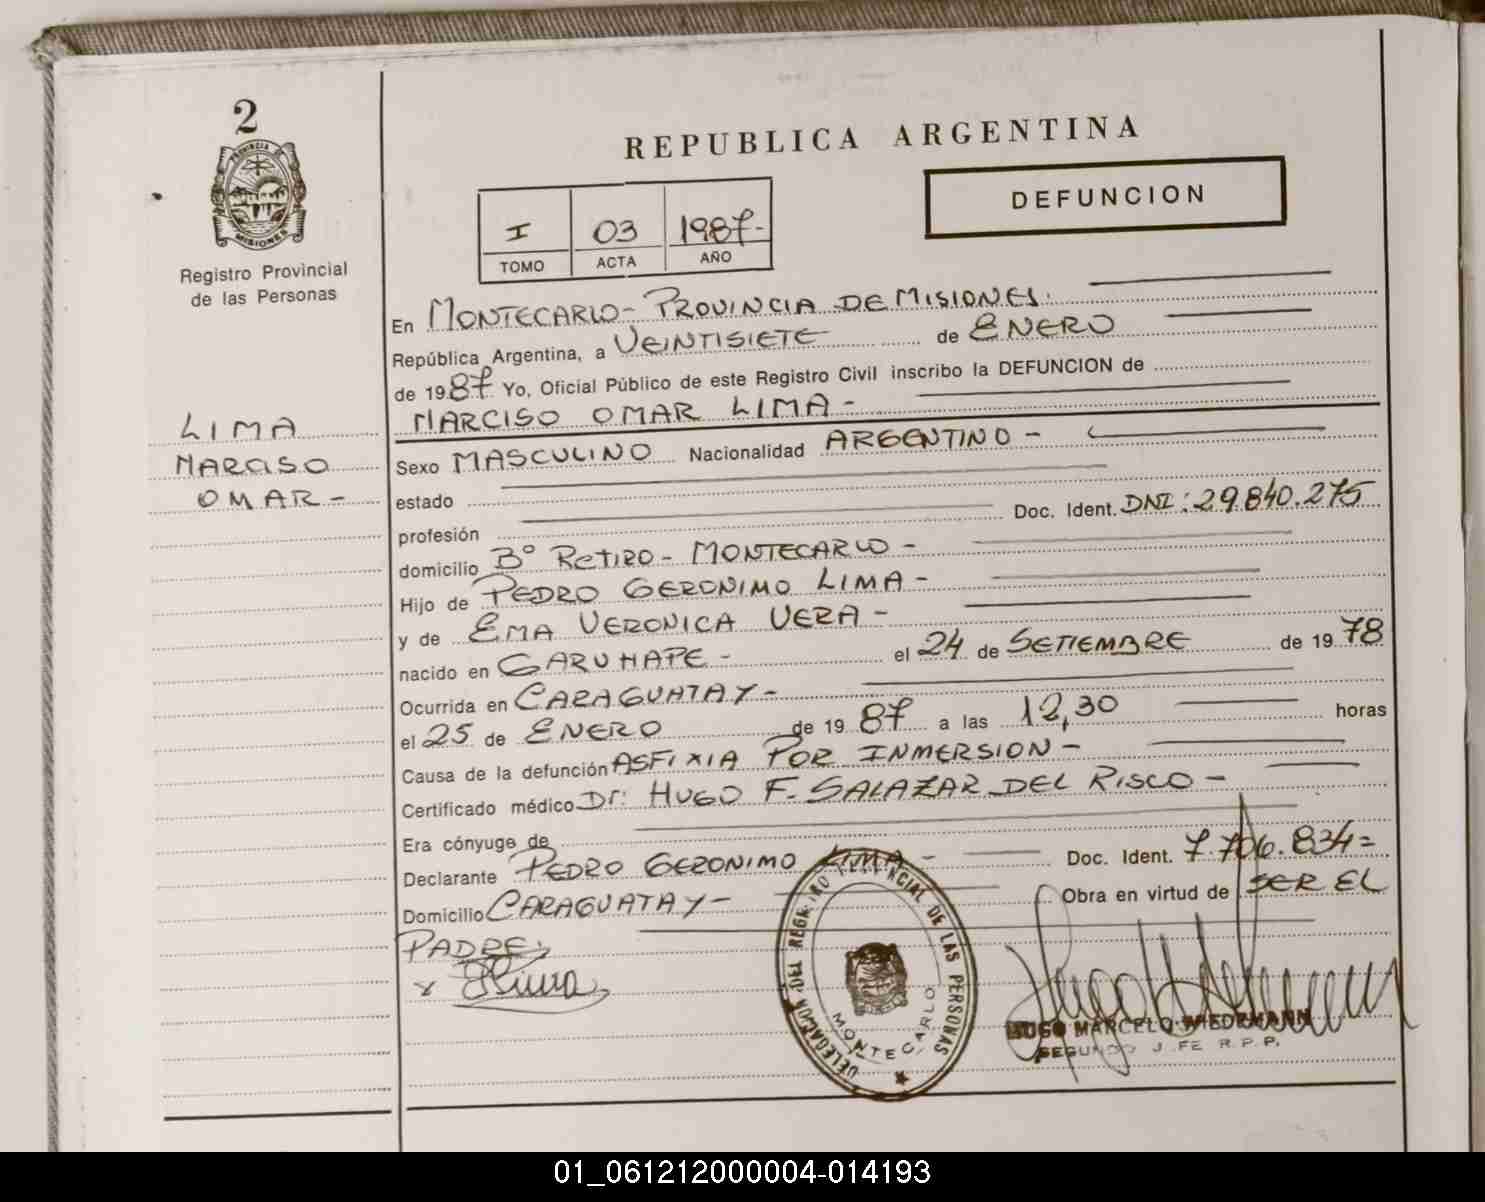 2
PROVINCIA
MISIONES
Registro Provincial
de las Personas
LIMA
NARCISO
OMAR -
REPUBLICA ARGENTINA
DEFUNCION
I 03 1987-
TOMO ACTA AÑO
En MONTECARLO - PROVINCIA DE MISIONES.
República Argentina, a VEINTISIETE de ENERO
de 1987 Yo, Oficial Público de este Registro Civil inscribo la DEFUNCION de
NARCISO OMAR LIMA -
Sexo MASCULINO Nacionalidad ARGENTINO -
estado
profesión Doc. Ident. DNI: 29.840.275
domicilio Bº RETIRO - MONTECARLO -
Hijo de PEDRO GERONIMO LIMA -
y de EMA VERONICA VERA -
nacido en GARUHAPE - el 24 de SETIEMBRE de 1978
Ocurrida en CARAGUATAY -
el 25 de ENERO de 1987 a las 12,30 horas
Causa de la defunción ASFIXIA POR INMERSION -
Certificado médico Dr: HUGO F. SALAZAR DEL RISCO -
Era cónyuge de
Declarante PEDRO GERONIMO LIMA - Doc. Ident. 7.706.834=
Domicilio CARAGUATAY - Obra en virtud de SER EL
PADRE.
x PLima
DELEGACION DEL REGISTRO PROVINCIAL DE LAS PERSONAS
MONTECARLO
HUGO MARCELO WIEDEMANN
SEGUNDO JEFE R.P.P.
01_061212000004-014193